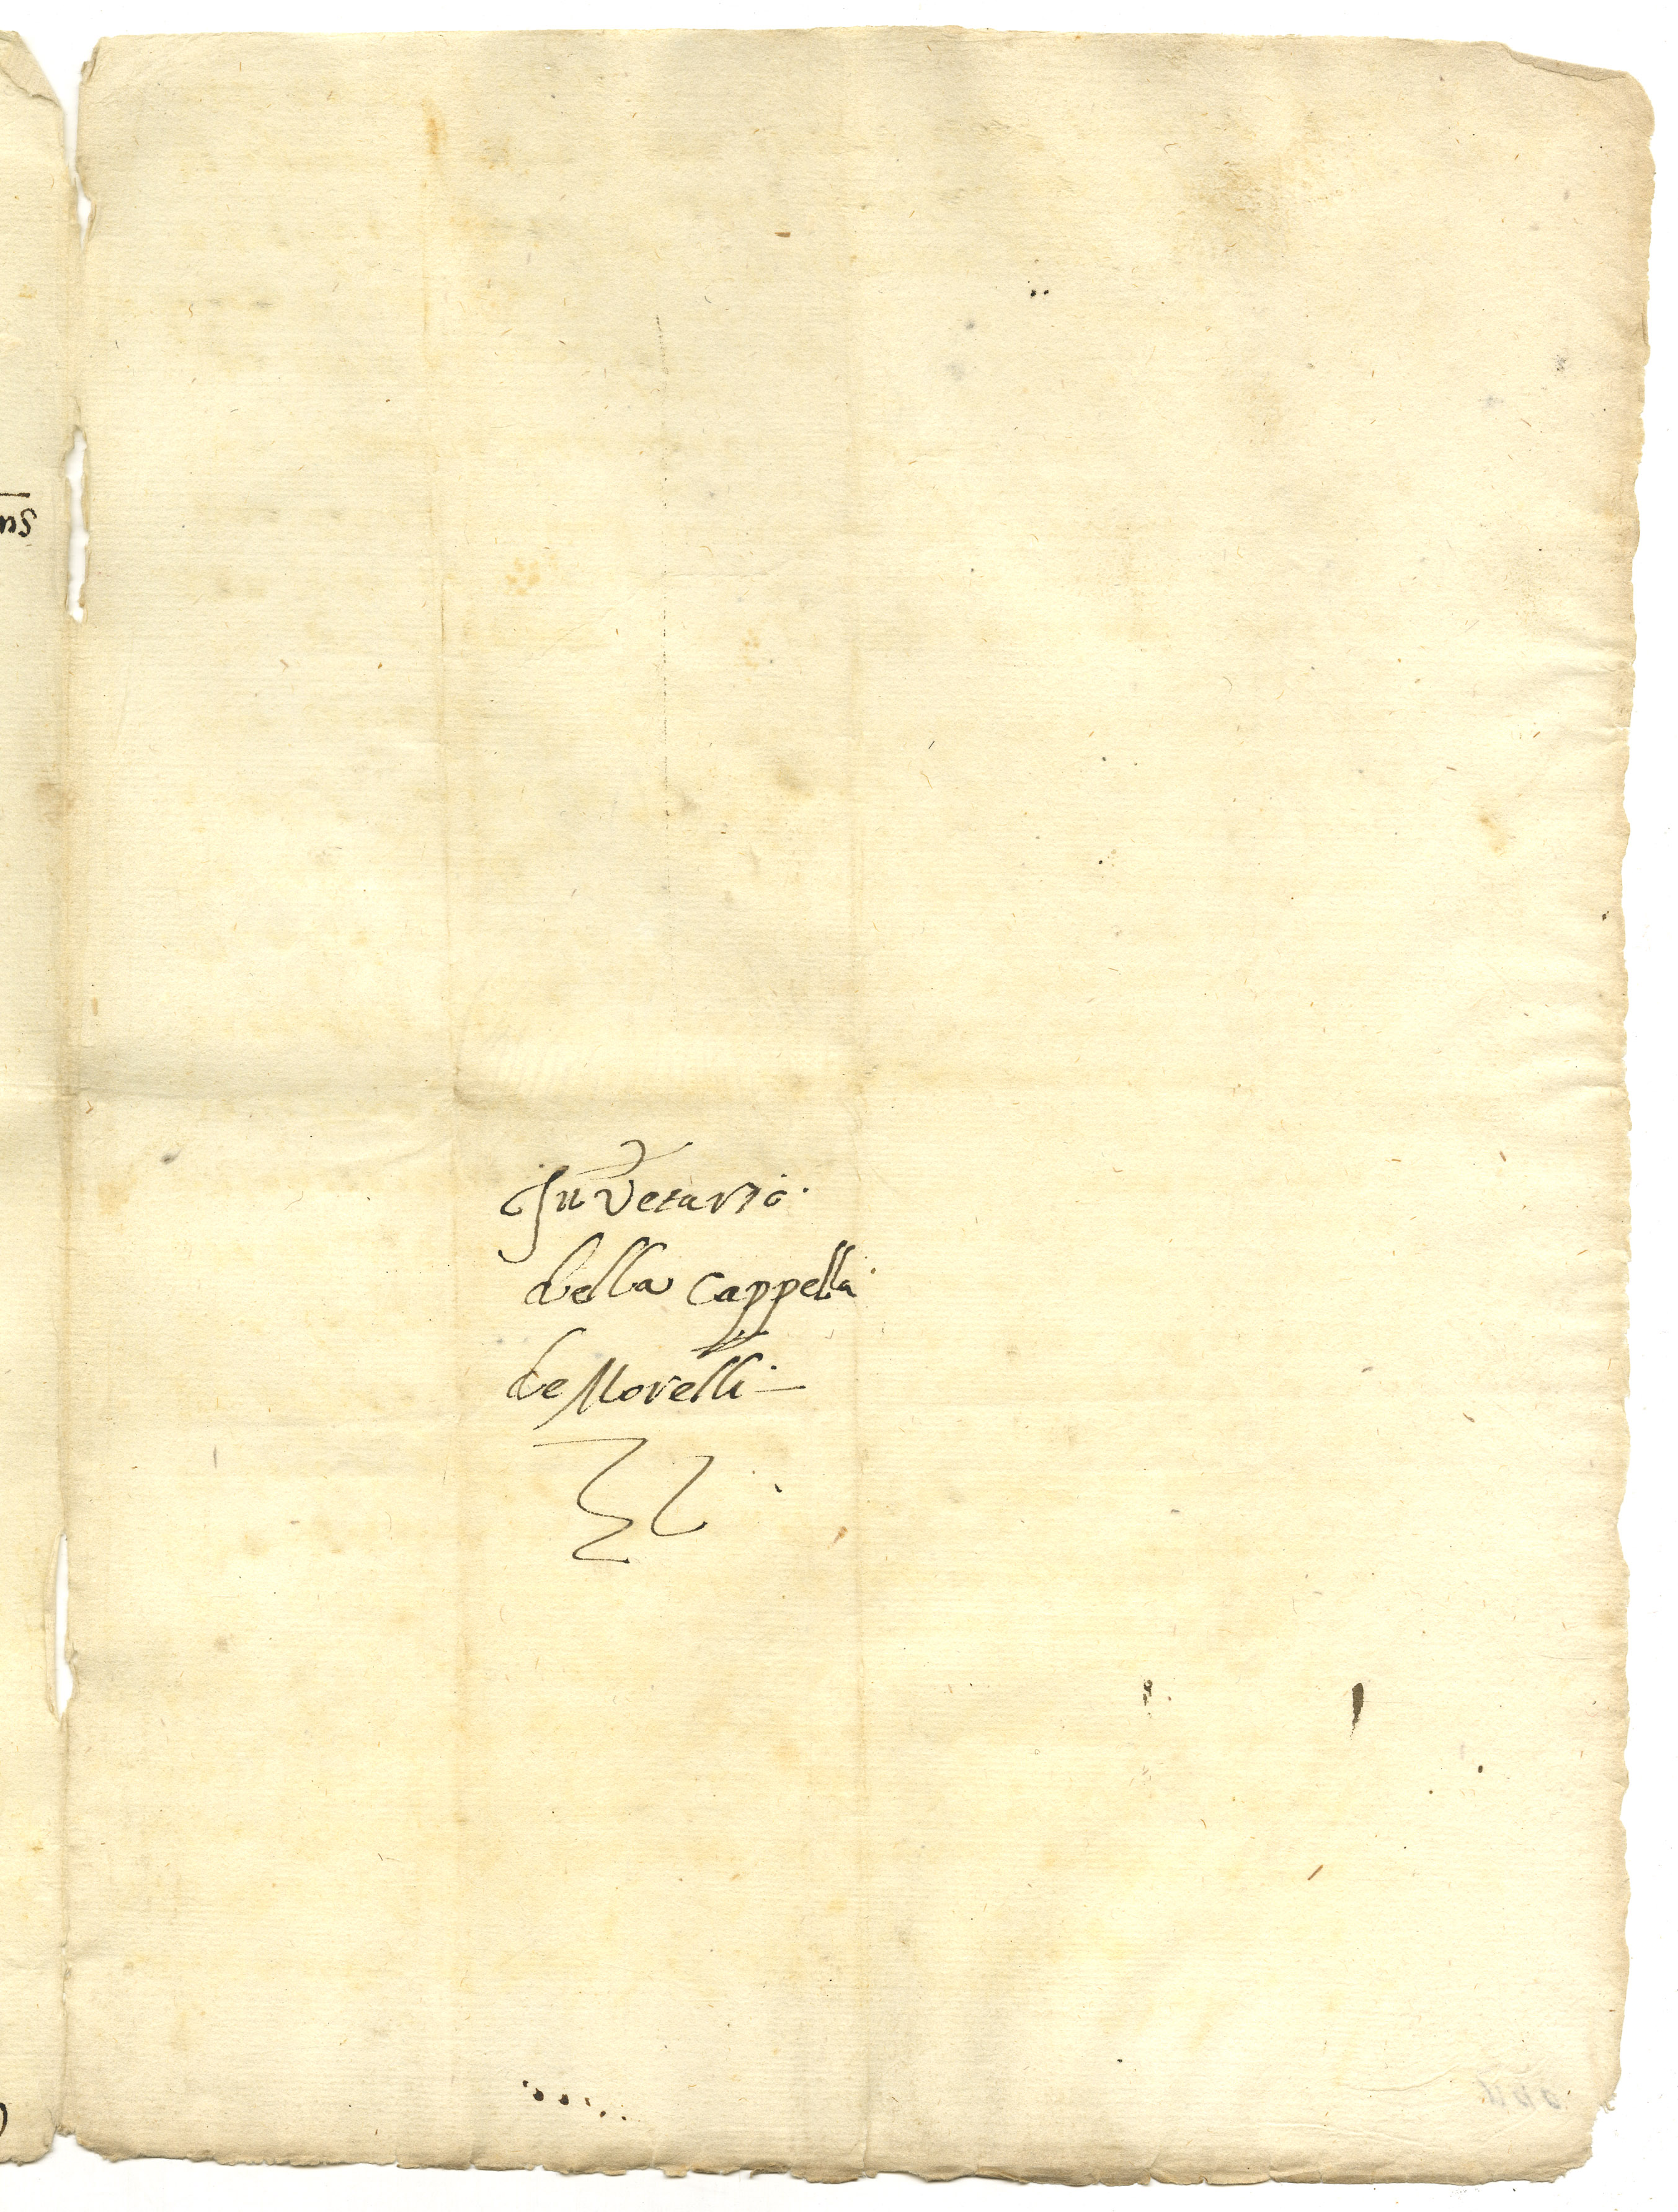 InVetario
della Cappella
de Morelli